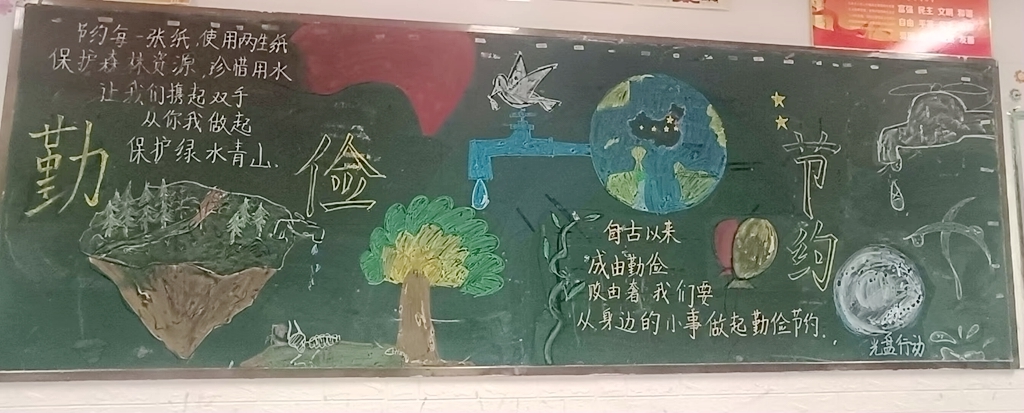 节约每一张纸,使用再生纸
保护森林资源,珍惜用水
让我们携起双手
从你我做起
保护绿水青山.
勤俭
节约
自古以来
成由勤俭
败由奢,我们要
从身边的小事做起勤俭节约.
光盘行动
富强 民主 文明 和谐
自由 平等